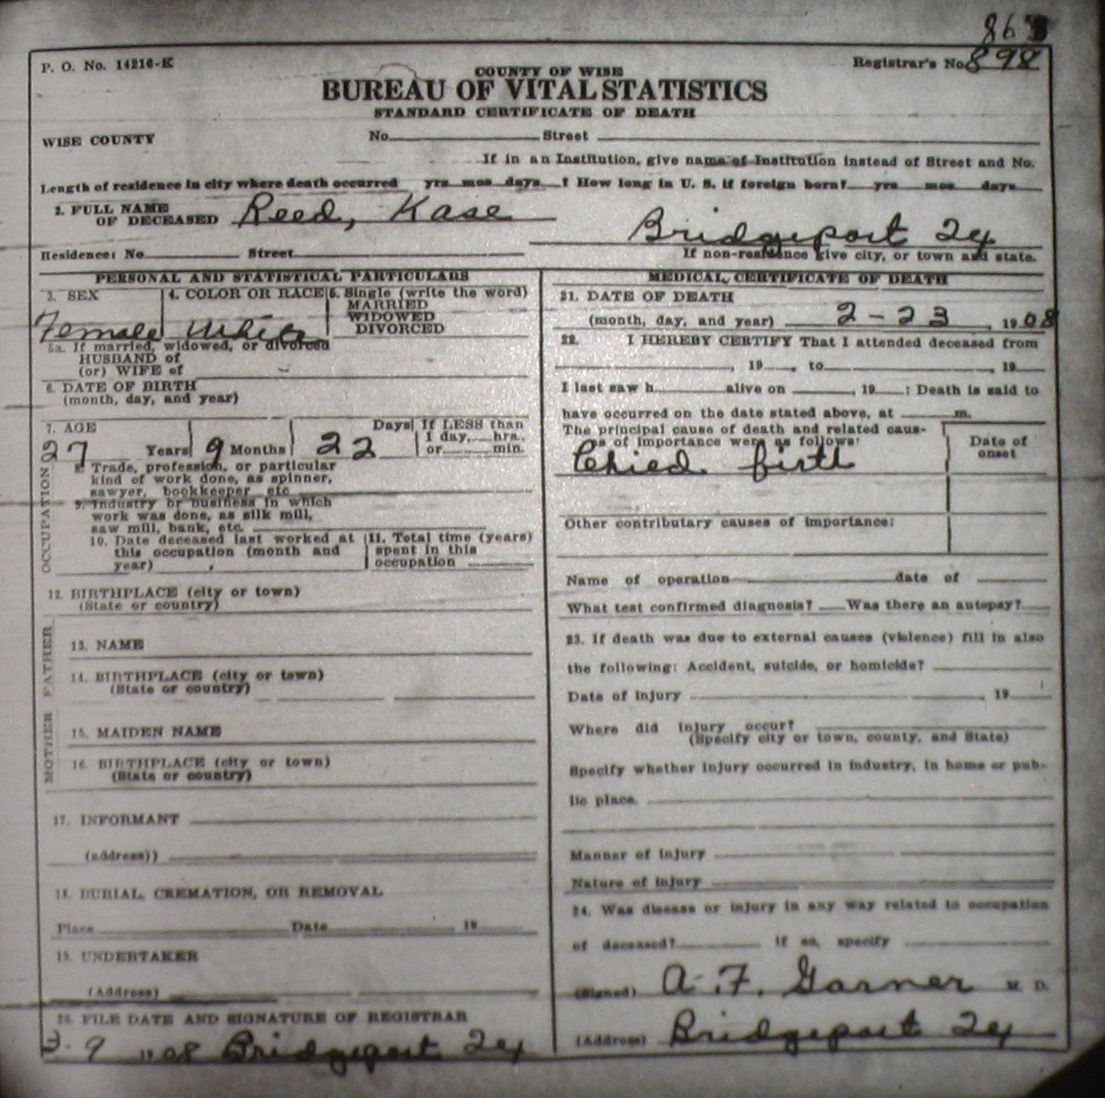 86
P. O. No. 14216-K
Registrar's No. 898
COUNTY OF WISE
BUREAU OF VITAL STATISTICS
STANDARD CERTIFICATE OF DEATH
WISE COUNTY No. Street
If in an Institution, give name of Institution instead of Street and No.
Length of residence in city where death occurred yrs mos days ? How long in U. S. if foreign born? yrs mos days
2. FULL NAME
OF DECEASED Reed, Kase
Bridgeport Tex
Residence: No Street
If non-residence give city, or town and state.
PERSONAL AND STATISTICAL PARTICULARS
3. SEX
Female
4. COLOR OR RACE
White
5. Single (write the word)
MARRIED
WIDOWED
DIVORCED
5a. If married, widowed, or divorced
HUSBAND of
(or) WIFE of
6. DATE OF BIRTH
(month, day, and year)
7. AGE
27 Years 9 Months 22 Days
If LESS than
1 day, hrs.
or min.
OCCUPATION
8. Trade, profession, or particular
kind of work done, as spinner,
sawyer, bookkeeper etc
9. Industry or business in which
work was done, as silk mill,
saw mill, bank, etc.
10. Date deceased last worked at
this occupation (month and
year)
11. Total time (years)
spent in this
occupation
12. BIRTHPLACE (city or town)
(State or country)
FATHER
13. NAME
14. BIRTHPLACE (city or town)
(State or country)
MOTHER
15. MAIDEN NAME
16. BIRTHPLACE (city or town)
(State or country)
17. INFORMANT
(address))
18. BURIAL, CREMATION, OR REMOVAL
Place Date 19
19. UNDERTAKER
(Address)
20. FILE DATE AND SIGNATURE OF REGISTRAR
3-9 1908 Bridgeport Tex
MEDICAL CERTIFICATE OF DEATH
21. DATE OF DEATH
(month, day, and year) 2-23, 1908
22. I HEREBY CERTIFY That I attended deceased from
, 19 , to , 19
I last saw h alive on , 19 : Death is said to
have occurred on the date stated above, at m.
The principal cause of death and related caus-
es of importance were as follows:
Date of
onset
Chied firth
Other contributary causes of importance:
Name of operation date of
What test confirmed diagnosis? Was there an autopsy?
23. If death was due to external causes (violence) fill in also
the following: Accident, suicide, or homicide?
Date of injury , 19
Where did injury occur?
(Specify city or town, county, and State)
Specify whether injury occurred in industry, in home or pub-
lic place.
Manner of injury
Nature of injury
24. Was disease or injury in any way related to occupation
of deceased? If so, specify
(Signed) A. F. Garner M. D.
(Address) Bridgeport Tex